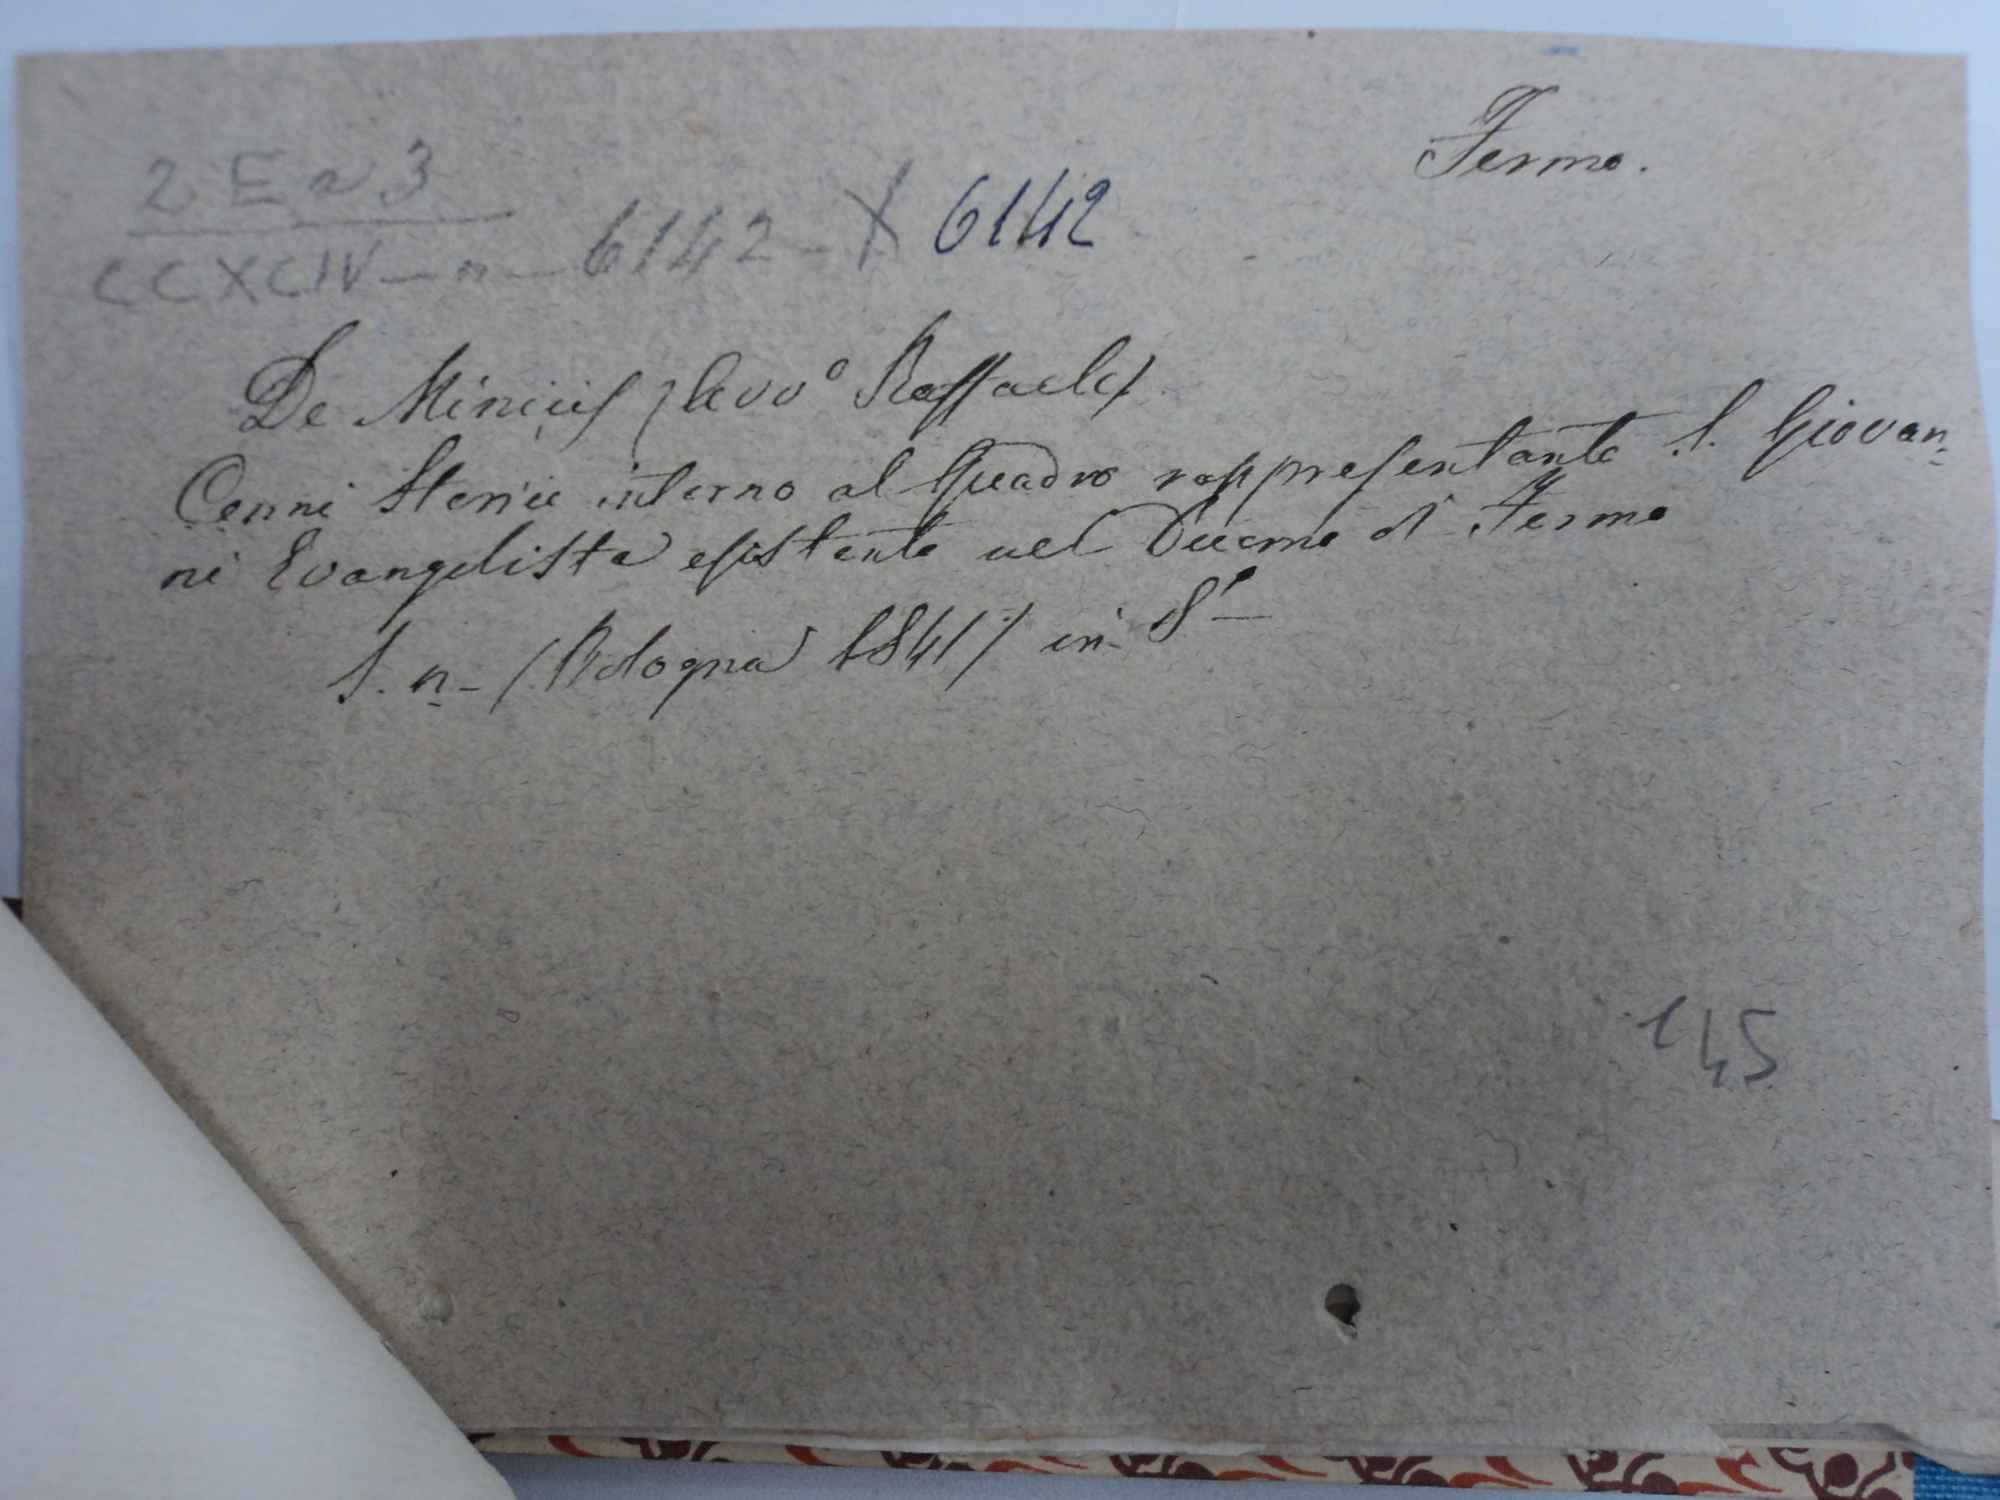 Fermo.
2 E n 3
CCXCIV - n - 6142 - X 6142
De Miniciis (Avvo Raffaele)
Cenni Storici intorno al Quadro rappresentante S. Giovan=
ni Evangelista esistente nel Duomo di Fermo
S. n - (Bologna 1841) in 8°
145